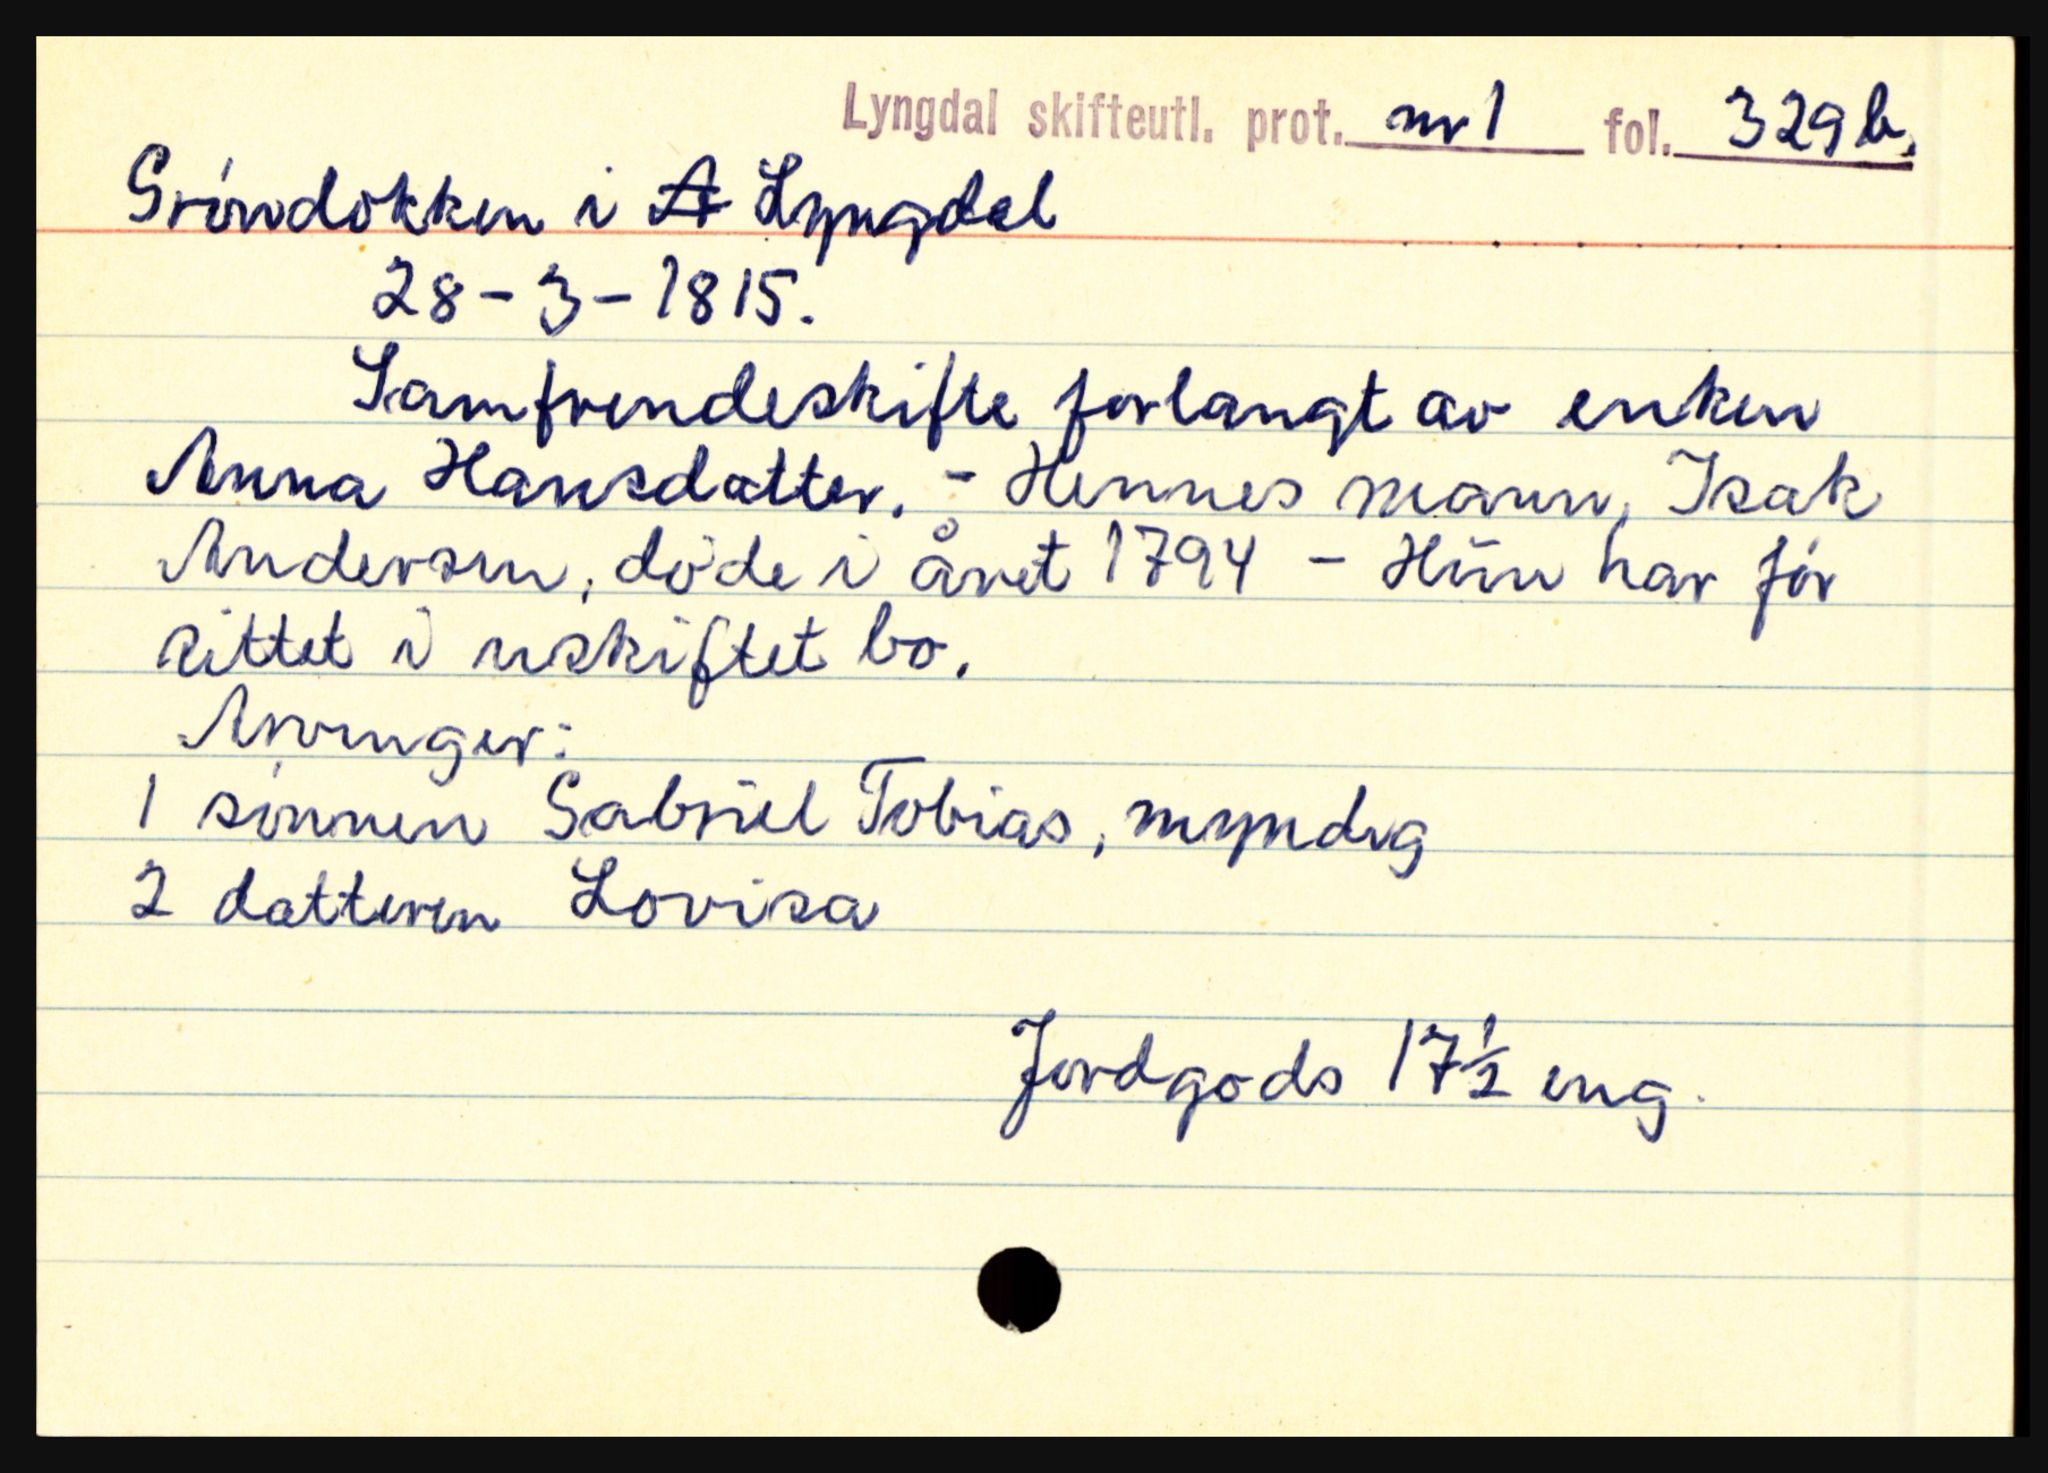 Lyngdal skifteutl. prot. nr 1 fol. 329b.
Gróndokken i A Lyngdal
28-3-1815.
Samfrendeskifte forlangt av enken
Anna Hansdatter. - Hennes mann, Isak
Andersen, döde i året 1794 - Hun har fór
sittet i uskiftet bo.
Arvinger:
1 sónnen Gabriel Tobias, myndig
2 datteren Lovisa
Jordgods 17½ eng.